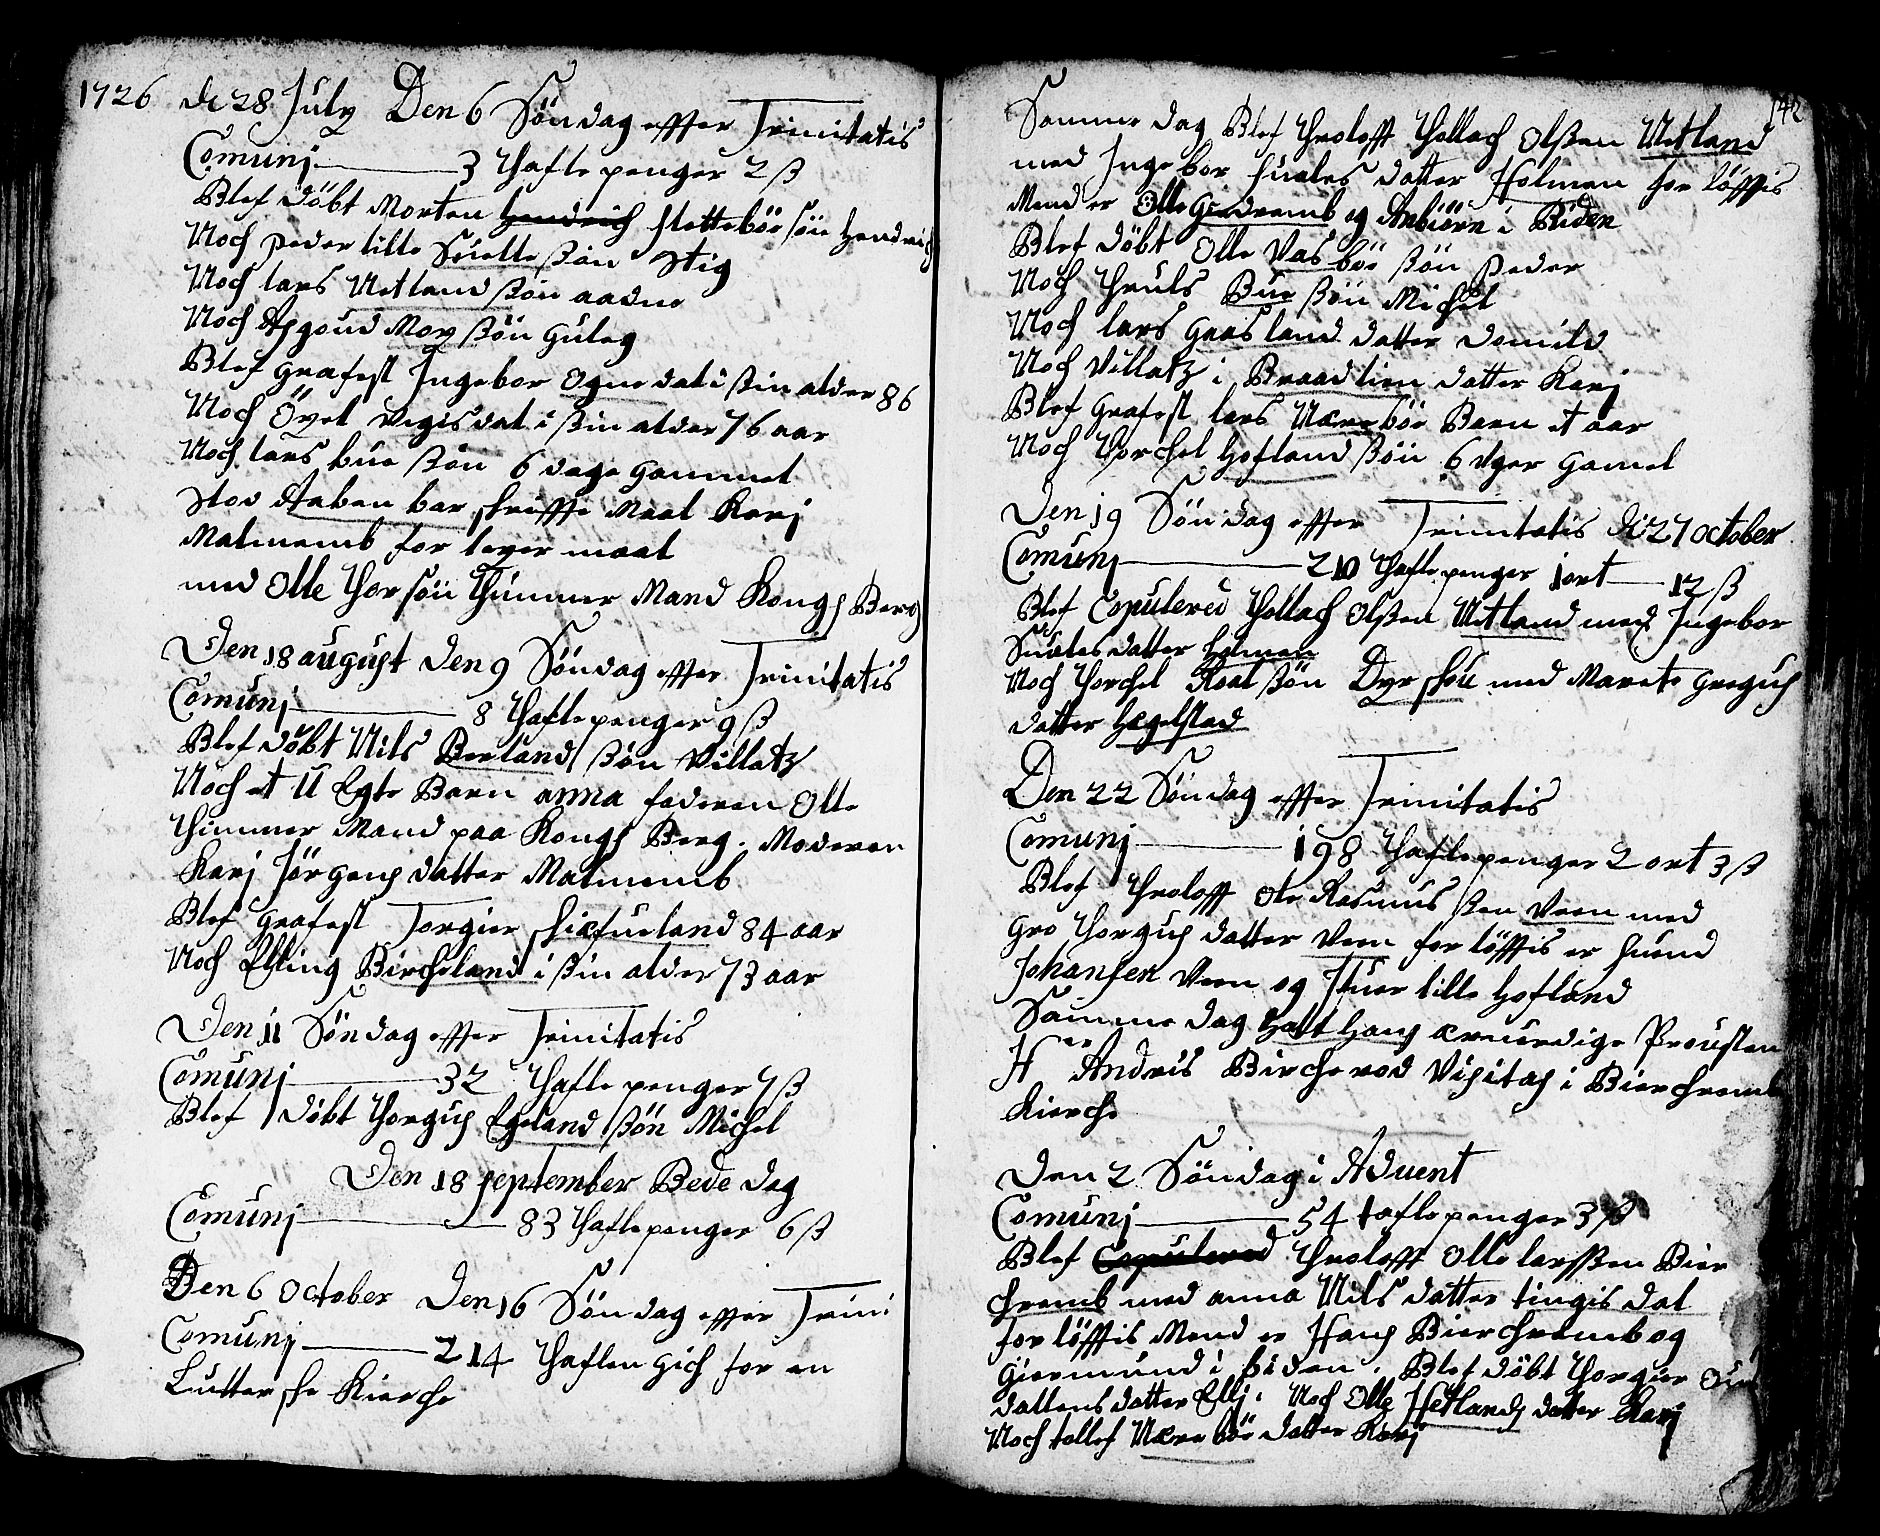 1726 de 28 July Den 6 Söndag effter Trinitatis
Comunj 3 Thafle penger 2 ß
Blef döbt Morten Hendrich sletteböe sön Hendrich
Noch peder lille Suelle ßön Stig
Noch lars Uetland ßön aadne
Noch Asgoud Moy ßön guleg
Blef grafest Ingebor Ognedal i ßin alder 86
Noch Öyel vegisdal i ßin alder 76 aar
Noch lars bue ßön 6 dage gammel
Stod Aabenbar skriffte Maal Karj
Malmemb for leyermaal
med Olle Thorsön Thimmer Mand Kongs Berg
Den 18 august Den 9 Söndag effter Trinitatis
Comunj 8 Thafle penger 9 ß
Blef döbt Nils Berland ßön Villatz
Noch et U Egte Barn anna faderen Olle
Thimmer Mand paa Kongs Berg. Moderen
Karj Jörgens datter Malmemb
Blef grafest Torgier skiæfueland 84 aar
Noch Elling Bircheland i ßin alder 73 aar
Den 11 Söndag effter Trinitatis
Comunj 32 Thafle penger 7 ß
Blef döbt Thorgus Egeland ßön Michel
Den 18 september Bede dag
Comunj 83 Thafle penger 6 ß
Den 6 October Den 16 Söndag effter Trini
Comunj 214 Thaflen gich for en
Lutter she Kierche
142
Samme dag Blef Throlofft Thollach Olßen Uetland
med Ingebor Suales datter Holmen for löffis
Mend er Olle Gudremb og Anbiörn i Biden
Blef döbt Olle Vasböe ßön peder
Noch Thruls Bue ßön Michel
Noch lars graasland datter Domild
Noch Villatz i Braadlien datter Karj
Blef grafest lars Næreböe Barn et aar
Noch Thorchel Hofland ßön 6 Uger gamel
Den 19 Söndag effter Trinitatis de 27 october
Comunj 210 Thafle penger 1 ort 12 ß
Blef Copulered Thollach Olßen Uetland med Ingebor
Suales datter Holmen
Noch Thorchel Roal ßön Dyrshou med Marete gregus
datter Hægelstad
Den 22 Söndag effter Trinitatis
Comunj 198 Thafle penger 2 ort 3 ß
Blef Throlofft Ole Rasmus ßen Veen med
gro Thorgus datter Veen for löffis er Suend
Johansen Veen og Ifuer lille Hofland
Samme dag Halt Hans ærværdige Prousten
Her Andris Bircherod Visitas i Bierchremb
Kierche
Den 2 Söndag i Aduent
Comunj 54 tafle penger 3 ß
Blef Copulered Throlofft Olle larsßen Bier
chremb med anna Nils datter tingisdal
for löffis Mend er Hans Bierchremb og
giermund i biden. Blef döbt Thorgier
dallens datter Ellj. Noch Olle Hetlands datter Karj
Noch tollef Næreböe datter Karj